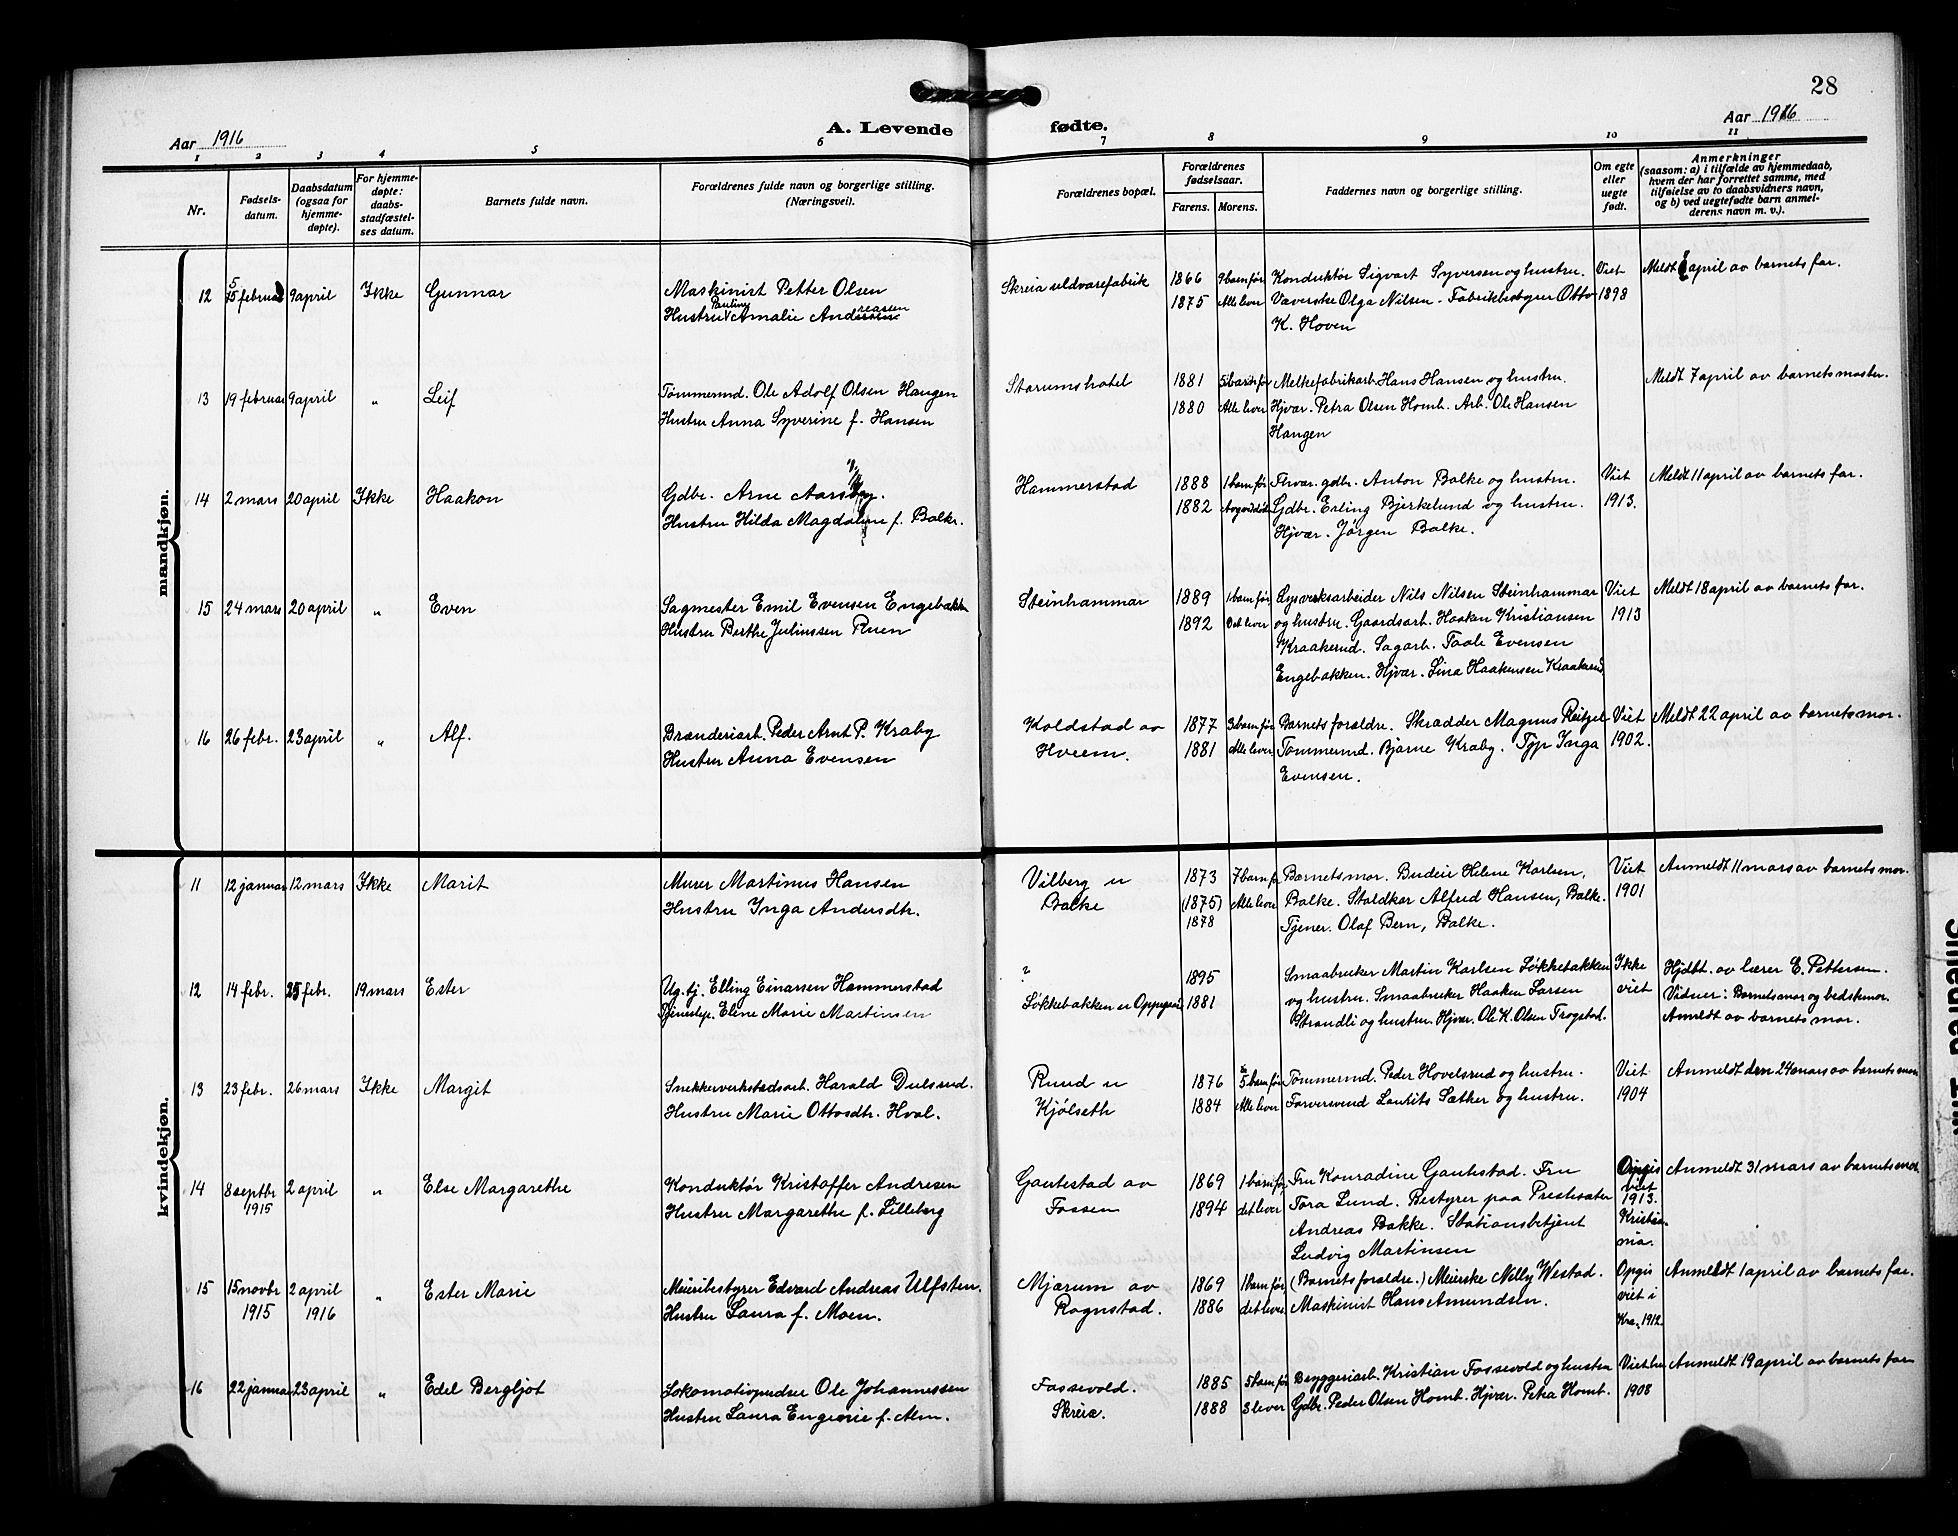 28
Aar 1916
A. Levende fødte.
Aar 1916
1 2 3 4 5 6 7 8 9 10 11
Nr.
Fødsels-
datum.
Daabsdatum
(ogsaa for
hjemme-
døpte).
For hjemme-
døpte:
daabs-
stadfæstel-
ses datum.
Barnets fulde navn.
Forældrenes fulde navn og borgerlige stilling.
(Næringsvei).
Forældrenes bopæl.
Forældrenes
fødselsaar.
Farens. Morens.
Faddernes navn og borgerlige stilling.
Om egte
eller
uegte
født.
Anmerkninger
(saasom: a) i tilfælde av hjemmedaab,
hvem der har forrettet samme, med
tilføielse av to daabsvidners navn,
og b) ved uegtefødte barn anmel-
derens navn m. v.).
mandkjøn.
12 5 februar 9 april Ikke Gunnar
Maskinist Petter Olsen
Hustru Pauline Amalie Andreasen
Skreia uldvarefabrik
1866 9 barn før
1875 Alle lever
Konduktør Sigvart Syversen og hustru.
Væverske Olga Nilsen. Fabrikbestyrer Otto
K. Hoven
Viet
1898
Meldt april av barnets far.
13 19 februar 9 april " Leif
Tømmermd. Ole Adolf Olsen Haugen
Hustru Anna Syverine f. Hansen
Starumshotel
1881 5 barn før
1880 Alle lever
Melkefabrikarb. Hans Hansen og hustru.
Hjvær. Petra Olsen Homb. Arb. Ole Hansen
Haugen
Meldt 7 april av barnets moster.
14 2 mars 20 april Ikke Haakon
Gdbr. Arne Aarsby.
Hustru Hilda Magdalene f. Balke.
Hammerstad
1888 1 barn før
1882
Fhvær. gdbr. Anton Balke og hustru.
Gdbr. Erling Bjerkelund og hustru.
Hjvær. Jørgen Balke.
Viet
1913.
Meldt 11 april av barnets far.
15 24 mars 20 april " Even
Sagmester Emil Evensen Engebakken
Hustru Berthe Juliussen Ruen
Steinhammar
1889 1 barn før
1892 Det lever
Lysverksarbeider Nils Nilsen Steinhammar
og hustru. Gaardsarb. Haakon Kristiansen
Kraakerud. Sagarb. Taale Evensen
Engebakken. Hjvær. Lina Haakensen Kraakerud.
Viet
1913
Meldt 18 april av barnets far.
16 26 febr. 23 april " Alf.
Brænderiarb. Peder Arnt P. Kraby
Hustru Anna Evensen
Koldstad av
Hveem.
1877 3 barn før
1881 Alle lever
Barnets forældre. Skrædder Magnus Reitzel
Tømmermd. Bjarne Kraby. Typ Inga
Evensen.
Viet
1902.
Meldt 22 april av barnets mor.
kvindekjøn.
11 12 januar 12 mars Ikke Marit
Murer Martinus Hansen
Hustru Inga Andersdtr.
Vilberg u
Balke
1873 7 barn f
(1875) Alle lever
1878
Barnets mor. Budeie Helene Karlsen,
Balke. Staldkar Alfred Hansen, Balke.
Tjener. Olaf Bern, Balke.
Viet
1901
Anmeldt 11 mars av barnets mor.
12 14 febr. 25 febr. 19 mars Ester
Ug. tj. Elling Einarsen Hammerstad
Tjenestep. Elene Marie Martinsen
?
Løkkebakken u Oppegaard
1895
1881
Smaabruker Martin Karlsen Løkkebakken
og hustru. Smaabruker Haaken Larsen
Strandli og hustru. Hjvær. Ole K. Olsen Trogstad.
Ikke
viet
Hjdbt. av lærer E. Pettersen.
Vidner: Barnets mor og bedstemor.
Anmeldt av barnets mor.
13 23 febr. 26 mars Ikke Margit
Snekkerverkstedsarb. Harald Dulsrud.
Hustru Marie Ottosdtr. Hval.
Ruud u
Kjølseth
1876 5 barn før
1884 Alle lever
Tømmermd. Peder Hovelsrud og hustru.
Farversvend Laurits Sæther og hustru.
Viet
1904
Anmeldt den 24 mars av barnets mor
14 8 septbr 2 april " Else Margarethe
1915
Konduktør Kristoffer Andresen
Hustru Margarethe f. Lilleberg
Gautestad av
Fossen
1869 1 barn før
1894 det lever
Fru Konradine Gautestad. Fru
Tora Lund. Bestyrer paa Prestesæter
Andreas Bakke. Stationsbetjent
Ludvig Martinsen
Opgis
viet
1913.
Kristia-
nia.
Anmeldt 31 mars av barnets mor
15 15 novbr 2 april " Ester Marie
1915 1916
Meieribestyrer Edvard Andreas Ulfsten.
Hustru Laura f. Moen.
Mjærum av
Rognstad.
1869 1 barn før
1886 det lever
(Barnets forældre.) Meierske Nelly Westad.
Maskinist Hans Amundsen.
Opgis
viet i
Kra. 1912.
Anmeldt 1 april av barnets far.
16 22 januar 23 april " Edel Bergljot
Lokomotivpudser Ole Johannessen
Hustru Laura Engevie f. Alm.
Fossevold.
Skreia.
1885 5 barn før
1888 3 lever
Bryggeriarb. Kristian Fossevold og hustru
Gdbr. Peder Olsen Homb. Hjvær. Petra Homb.
1908
Anmeldt 19 april av barnets far